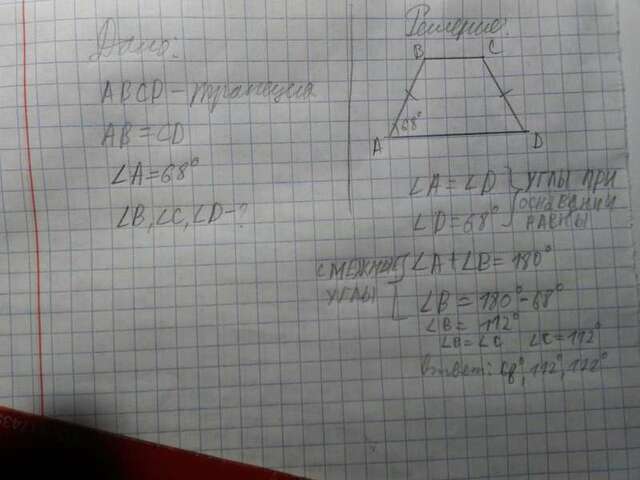 Дано:
ABCD – трапеция
AB = CD
∠A = 68°
∠B, ∠C, ∠D - ?
Решение:
B C
68°
A D
∠A = ∠D } УГЛЫ ПРИ
∠D = 68° ОСНОВАНИИ
РАВНЫ
СМЕЖНЫЕ ∠A + ∠B = 180°
УГЛЫ
∠B = 180° - 68°
∠B = 112°
∠B = ∠C ∠C = 112°
Ответ: 68°, 112°, 112°